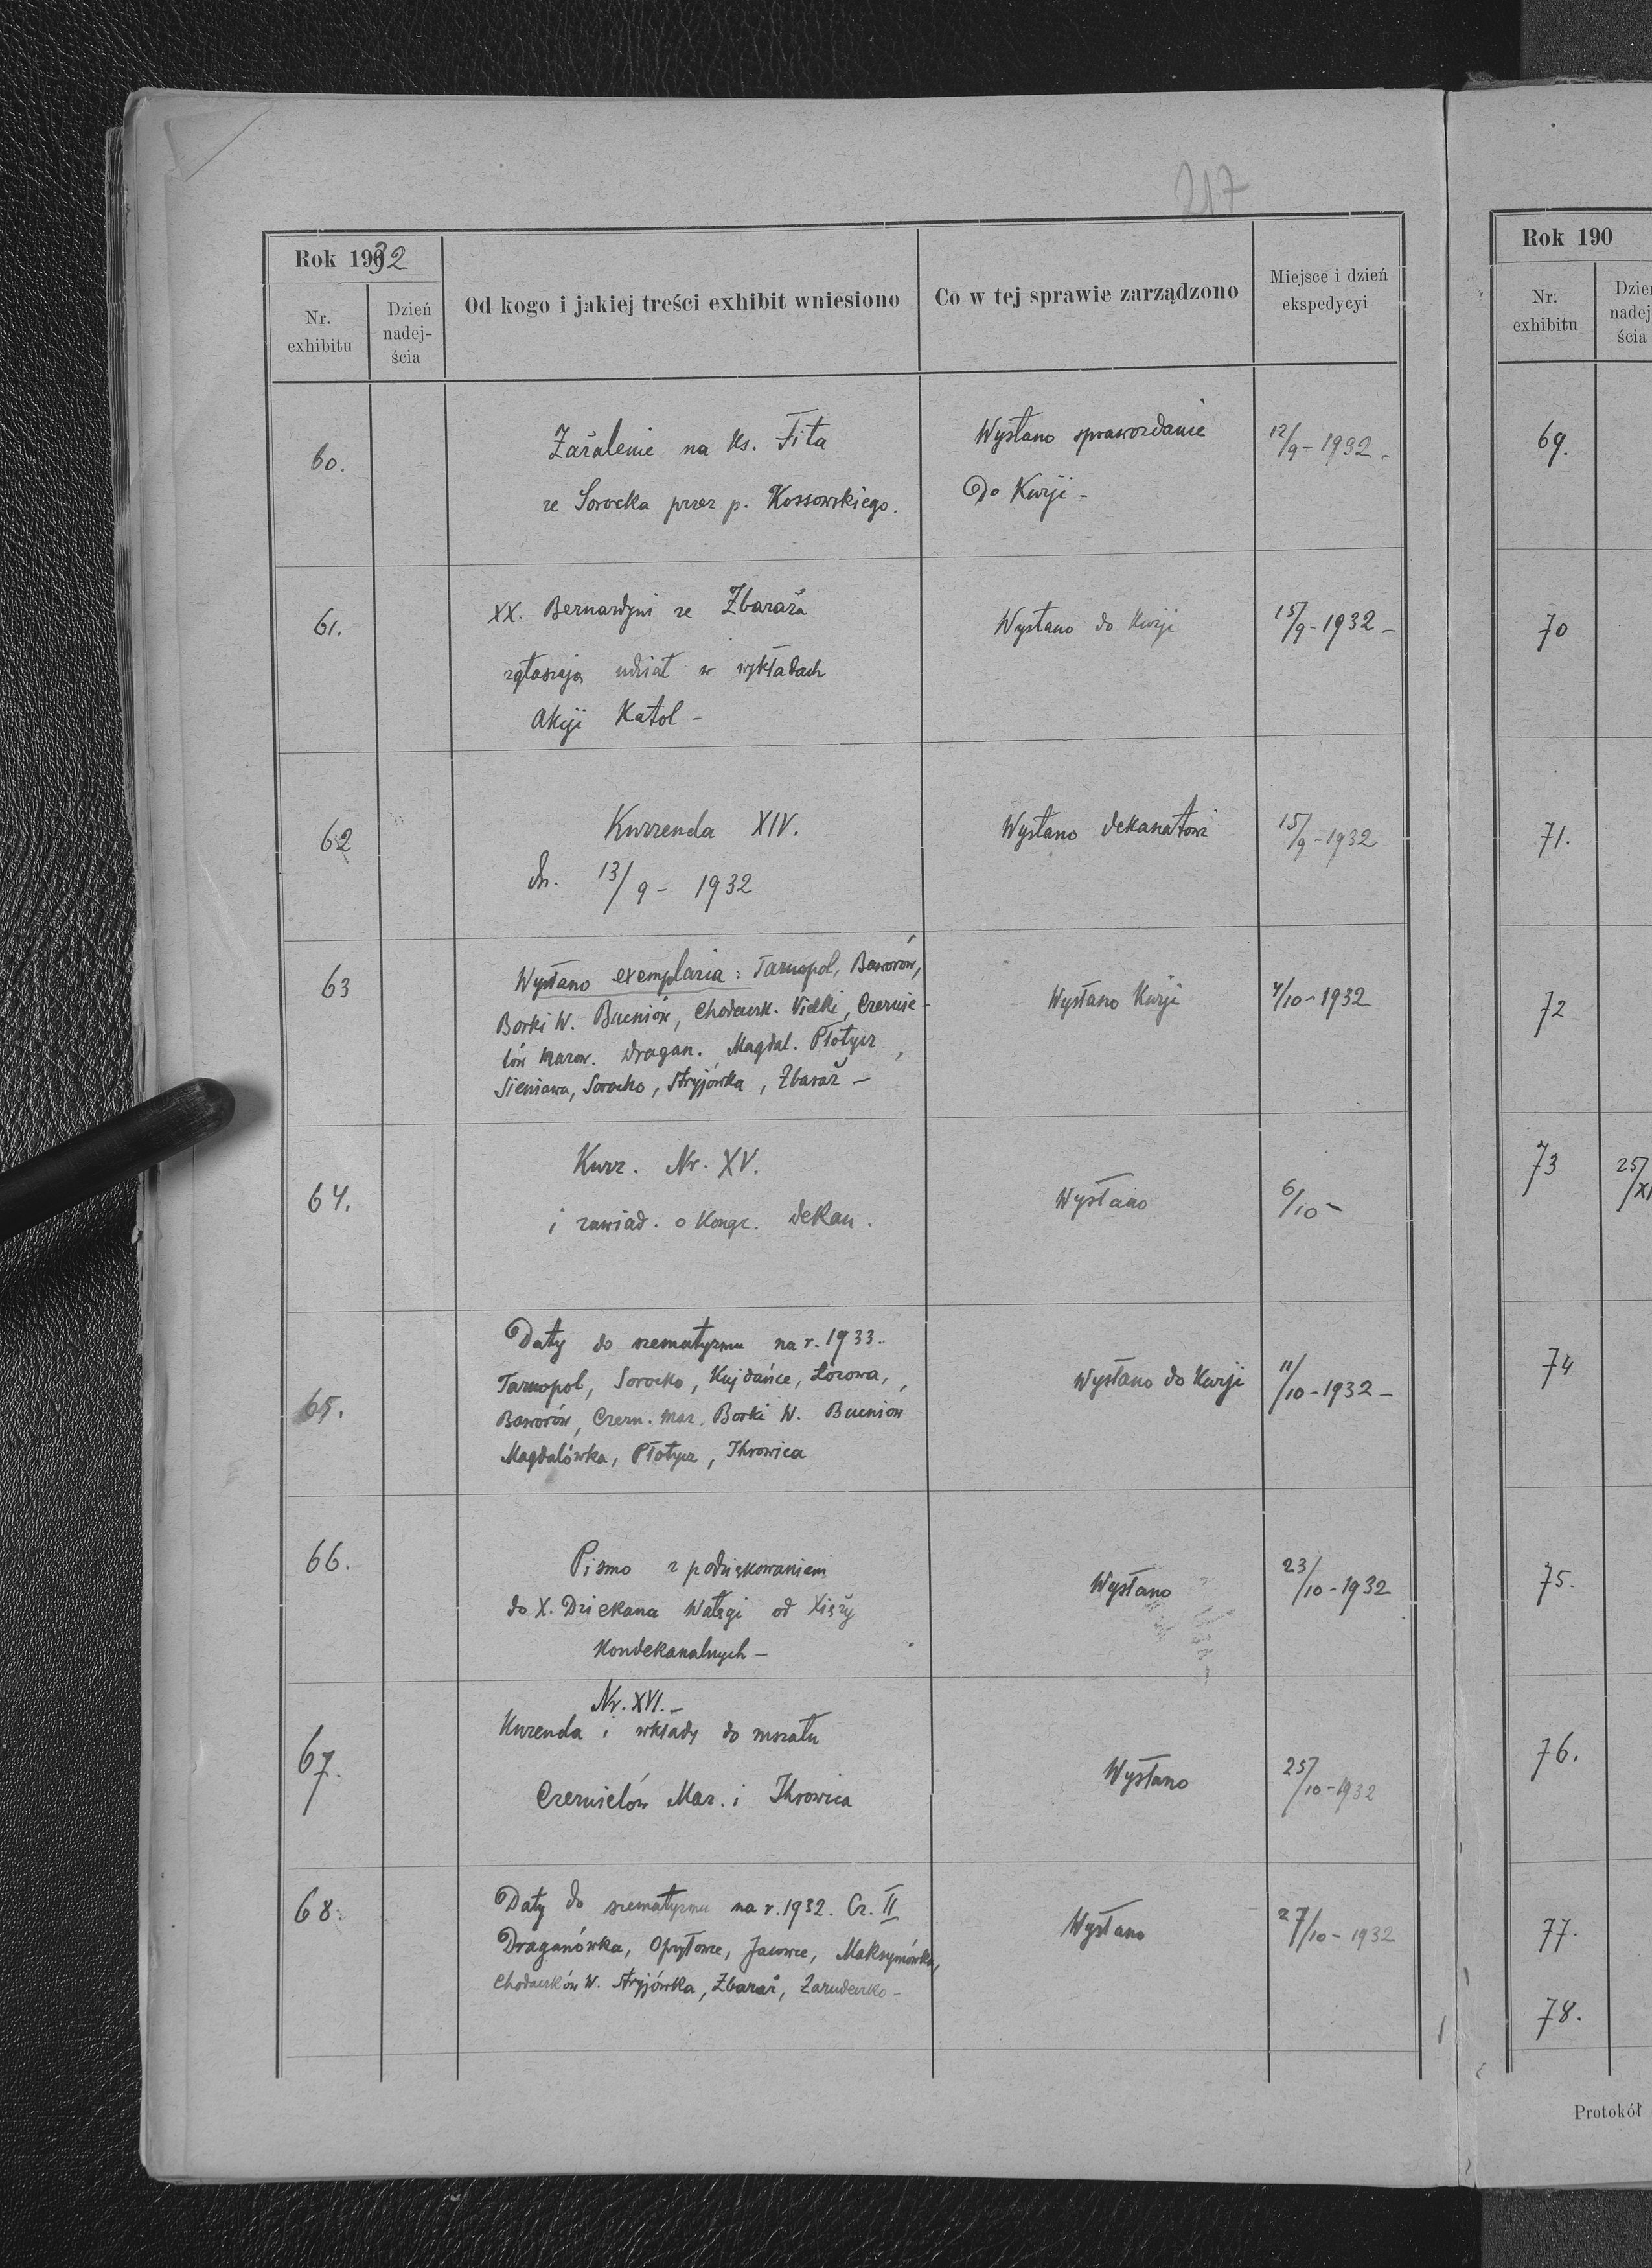 217
Rok 1932
Nr. exhibitu
Dzień nadej-ścia
Od kogo i jakiej treści exhibit wniesiono
Co w tej sprawie zarządzono
Miejsce i dzień ekspedycyi
60.
Zażalenie na ks. Fita
ze Sorocka przez p. Kossowskiego.
Wysłano sprawozdanie
do Kurji -
12/9 - 1932 -
61.
XX. Bernardyni ze Zbaraża
zgłaszają udział w wykładach
Akcji Katol -
Wysłano do Kurji
15/9 - 1932 -
62
Kurrenda XIV.
dn. 13/9 - 1932
Wysłano dekanatowi
15/9 - 1932
63
Wysłano exemplaria: Tarnopol, Baworów,
Borki W. Bucniów, Chodaczk. Wielki, Czernie-
lów Mazow. Dragan. Magdal. Płotycz,
Sieniawa, Sorocko, Stryjówka, Zbaraż -
Wysłano Kurji
4/10 - 1932
64.
Kurr. Nr. XV.
i zawiad. o Kongr. dekan.
Wysłano
6/10 -
65.
Daty do szematyzmu na r. 1933.
Tarnopol, Sorocko, Kujdańce, Łozowa,
Baworów, Czern. Maz. Borki W. Bucniow
Magdalówka, Płotycz, Ihrowica
Wysłano do Kurji
11/10 - 1932 -
66.
Pismo z podziękowaniem
do X. Dziekana Wałęgi od Xięży
Kondekanalnych -
Wysłano
23/10 - 1932
67.
Nr. XVI. -
Kurenda i wkłady do mszału
Czernielów Maz. i Ihrowica
Wysłano
25/10 - 1932
68.
Daty do szematyzmu na r. 1932. Cz. II
Draganówka, Opryłowce, Jacowce, Maksymówka,
Chodaczków W. Stryjówka, Zbaraż, Zarudeczko -
Wysłano
27/10 - 1932
Rok 190
Nr. exhibitu
Dzień
nadej
ścia
69.
70
71.
72
73
25/XI
74
75.
76.
77.
78.
Protokół